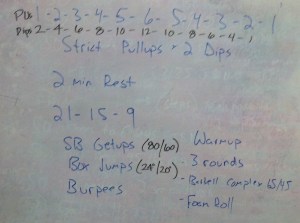 PUs 1-2-3-4-5-6-5-4-3-2-1
Dips 2-4-6-8-10-12-10-8-6-4-
Strict Pullups 2 Dips
2 min Rest
21-15-9
SB Getups (80/60)
Box Jumps (24"/20")
Burpees
Warmup
- 3 rounds
- Barbell complex 65/45
- Foam Roll